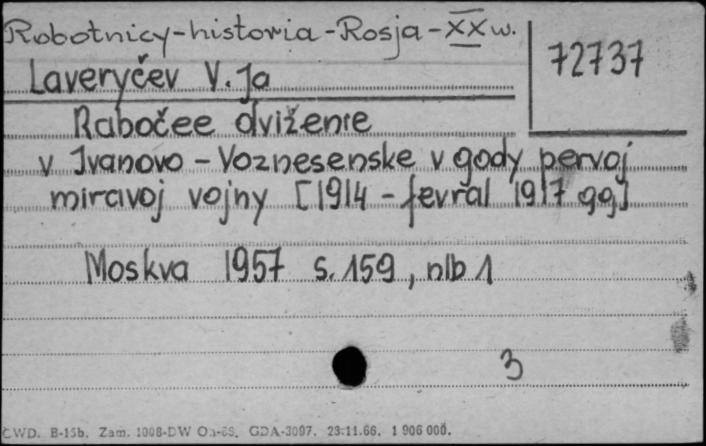 Robotnicy-historia-Rosja-XX w.
72737
Laveryčev V. Ja
Rabočee dviženie
v Ivanovo-Voznesenske v gody pervoj
miravoj vojny [1914 - fevral 1917 gg]
Moskva 1957 s. 159, nlb 1
3
CWD. B-15b. Zam. 1008-DW GDA-3097. 23.11.66. 1 906 000.